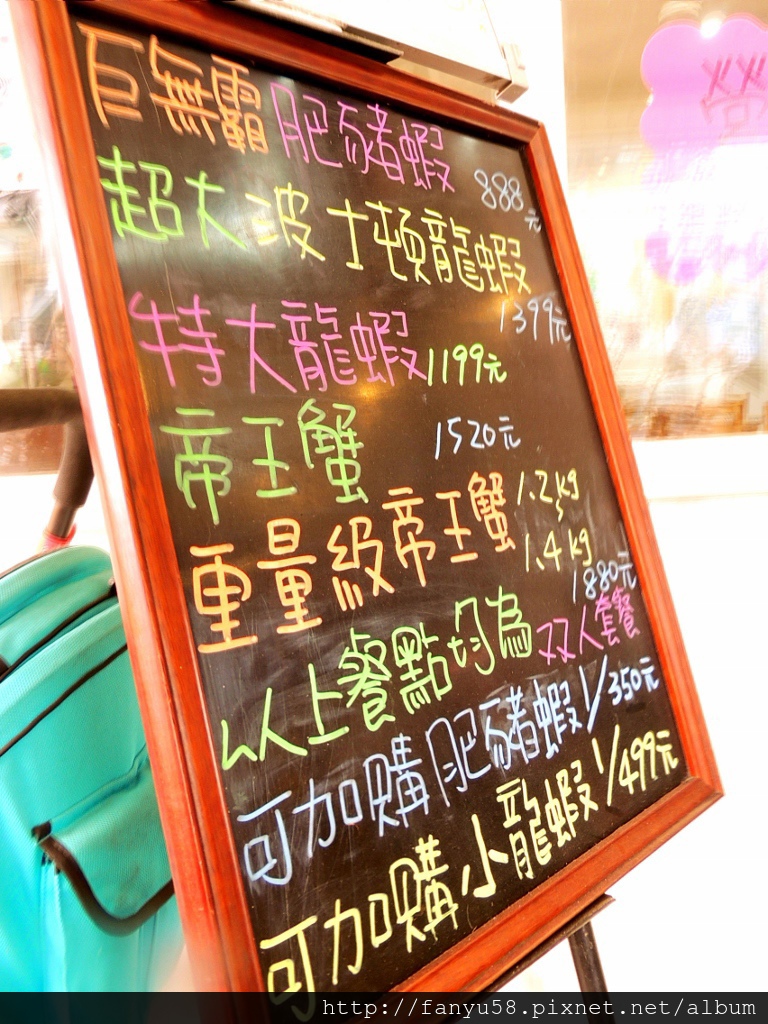 巨無霸肥豬蝦 888元
超大波士頓龍蝦
1399元
特大龍蝦 1199元
帝王蟹 1520元
重量級帝王蟹 1.2kg
1.4kg
1880元
以上餐點均為双人套餐
可加購肥豬蝦1/350元
可加購小龍蝦1/499元
http://fanyu58.pixnet.net/album